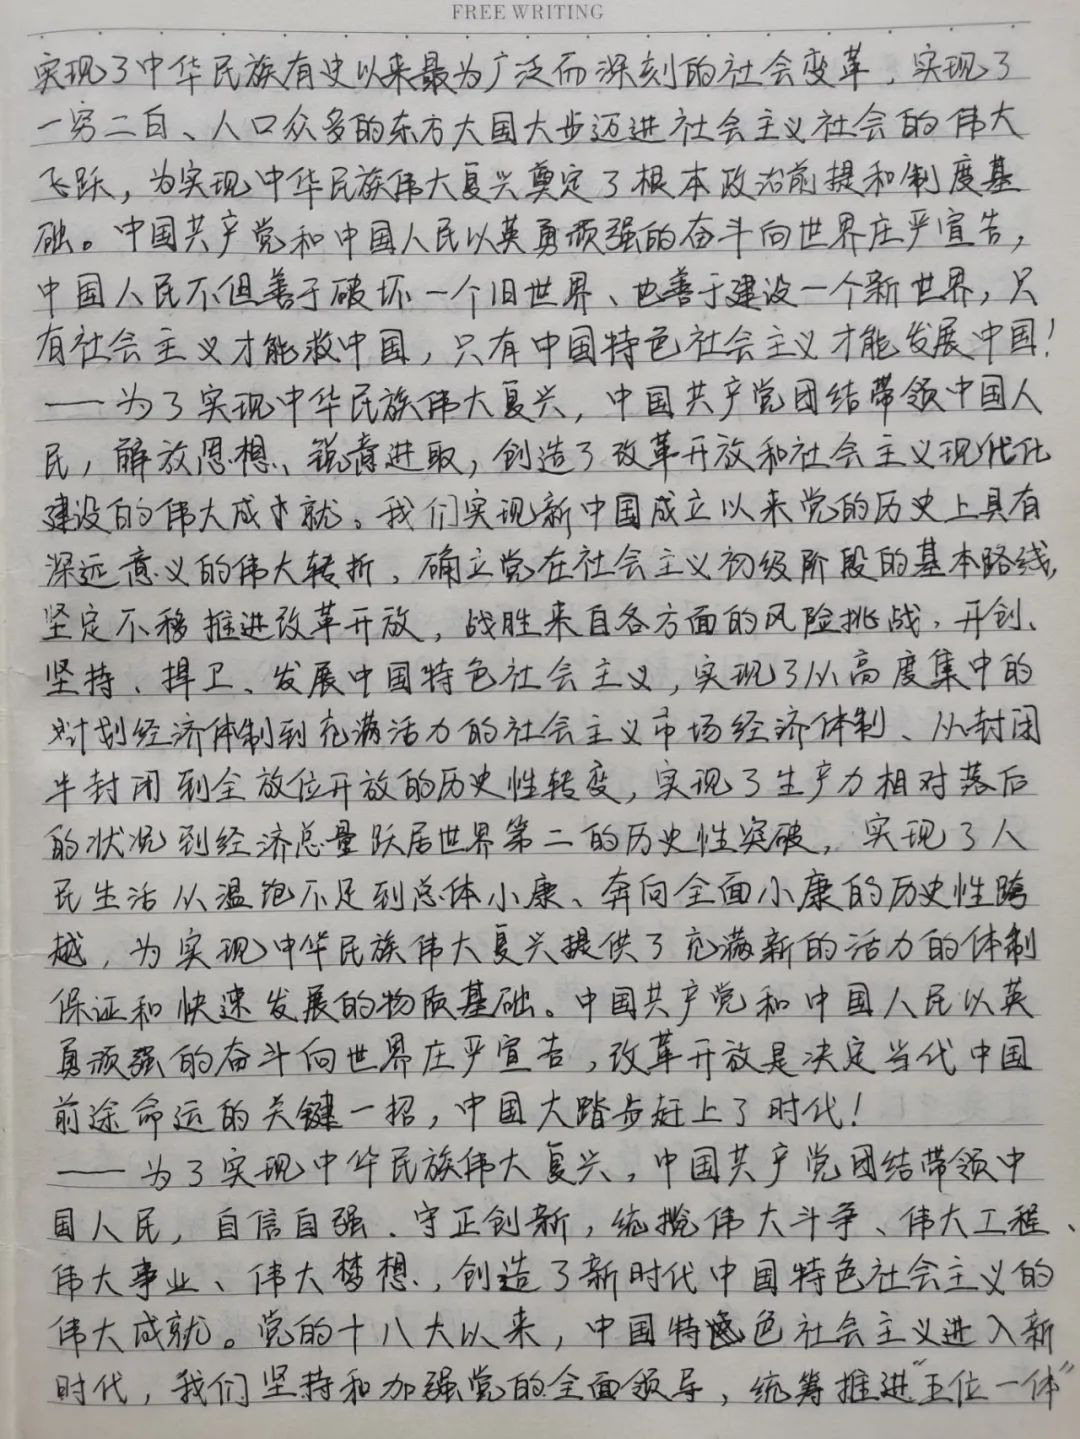 FREE WRITING
实现了中华民族有史以来最为广泛而深刻的社会变革，实现了
一穷二白、人口众多的东方大国大步迈进社会主义社会的伟大
飞跃，为实现中华民族伟大复兴奠定了根本政治前提和制度基
础。中国共产党和中国人民以英勇顽强的奋斗向世界庄严宣告，
中国人民不但善于破坏一个旧世界、也善于建设一个新世界，只
有社会主义才能救中国，只有中国特色社会主义才能发展中国！
——为了实现中华民族伟大复兴，中国共产党团结带领中国人
民，解放思想、锐意进取，创造了改革开放和社会主义现代化
建设的伟大成就。我们实现新中国成立以来党的历史上具有
深远意义的伟大转折，确立党在社会主义初级阶段的基本路线，
坚定不移推进改革开放，战胜来自各方面的风险挑战，开创、
坚持、捍卫、发展中国特色社会主义，实现了从高度集中的
计划经济体制到充满活力的社会主义市场经济体制、从封闭
半封闭到全放位开放的历史性转变，实现了生产力相对落后
的状况到经济总量跃居世界第二的历史性突破，实现了人
民生活从温饱不足到总体小康、奔向全面小康的历史性跨
越，为实现中华民族伟大复兴提供了充满新的活力的体制
保证和快速发展的物质基础。中国共产党和中国人民以英
勇顽强的奋斗向世界庄严宣告，改革开放是决定当代中国
前途命运的关键一招，中国大踏步赶上了时代！
——为了实现中华民族伟大复兴，中国共产党团结带领中
国人民，自信自强、守正创新，统揽伟大斗争、伟大工程、
伟大事业、伟大梦想，创造了新时代中国特色社会主义的
伟大成就。党的十八大以来，中国特色社会主义进入新
时代，我们坚持和加强党的全面领导，统筹推进“五位一体”